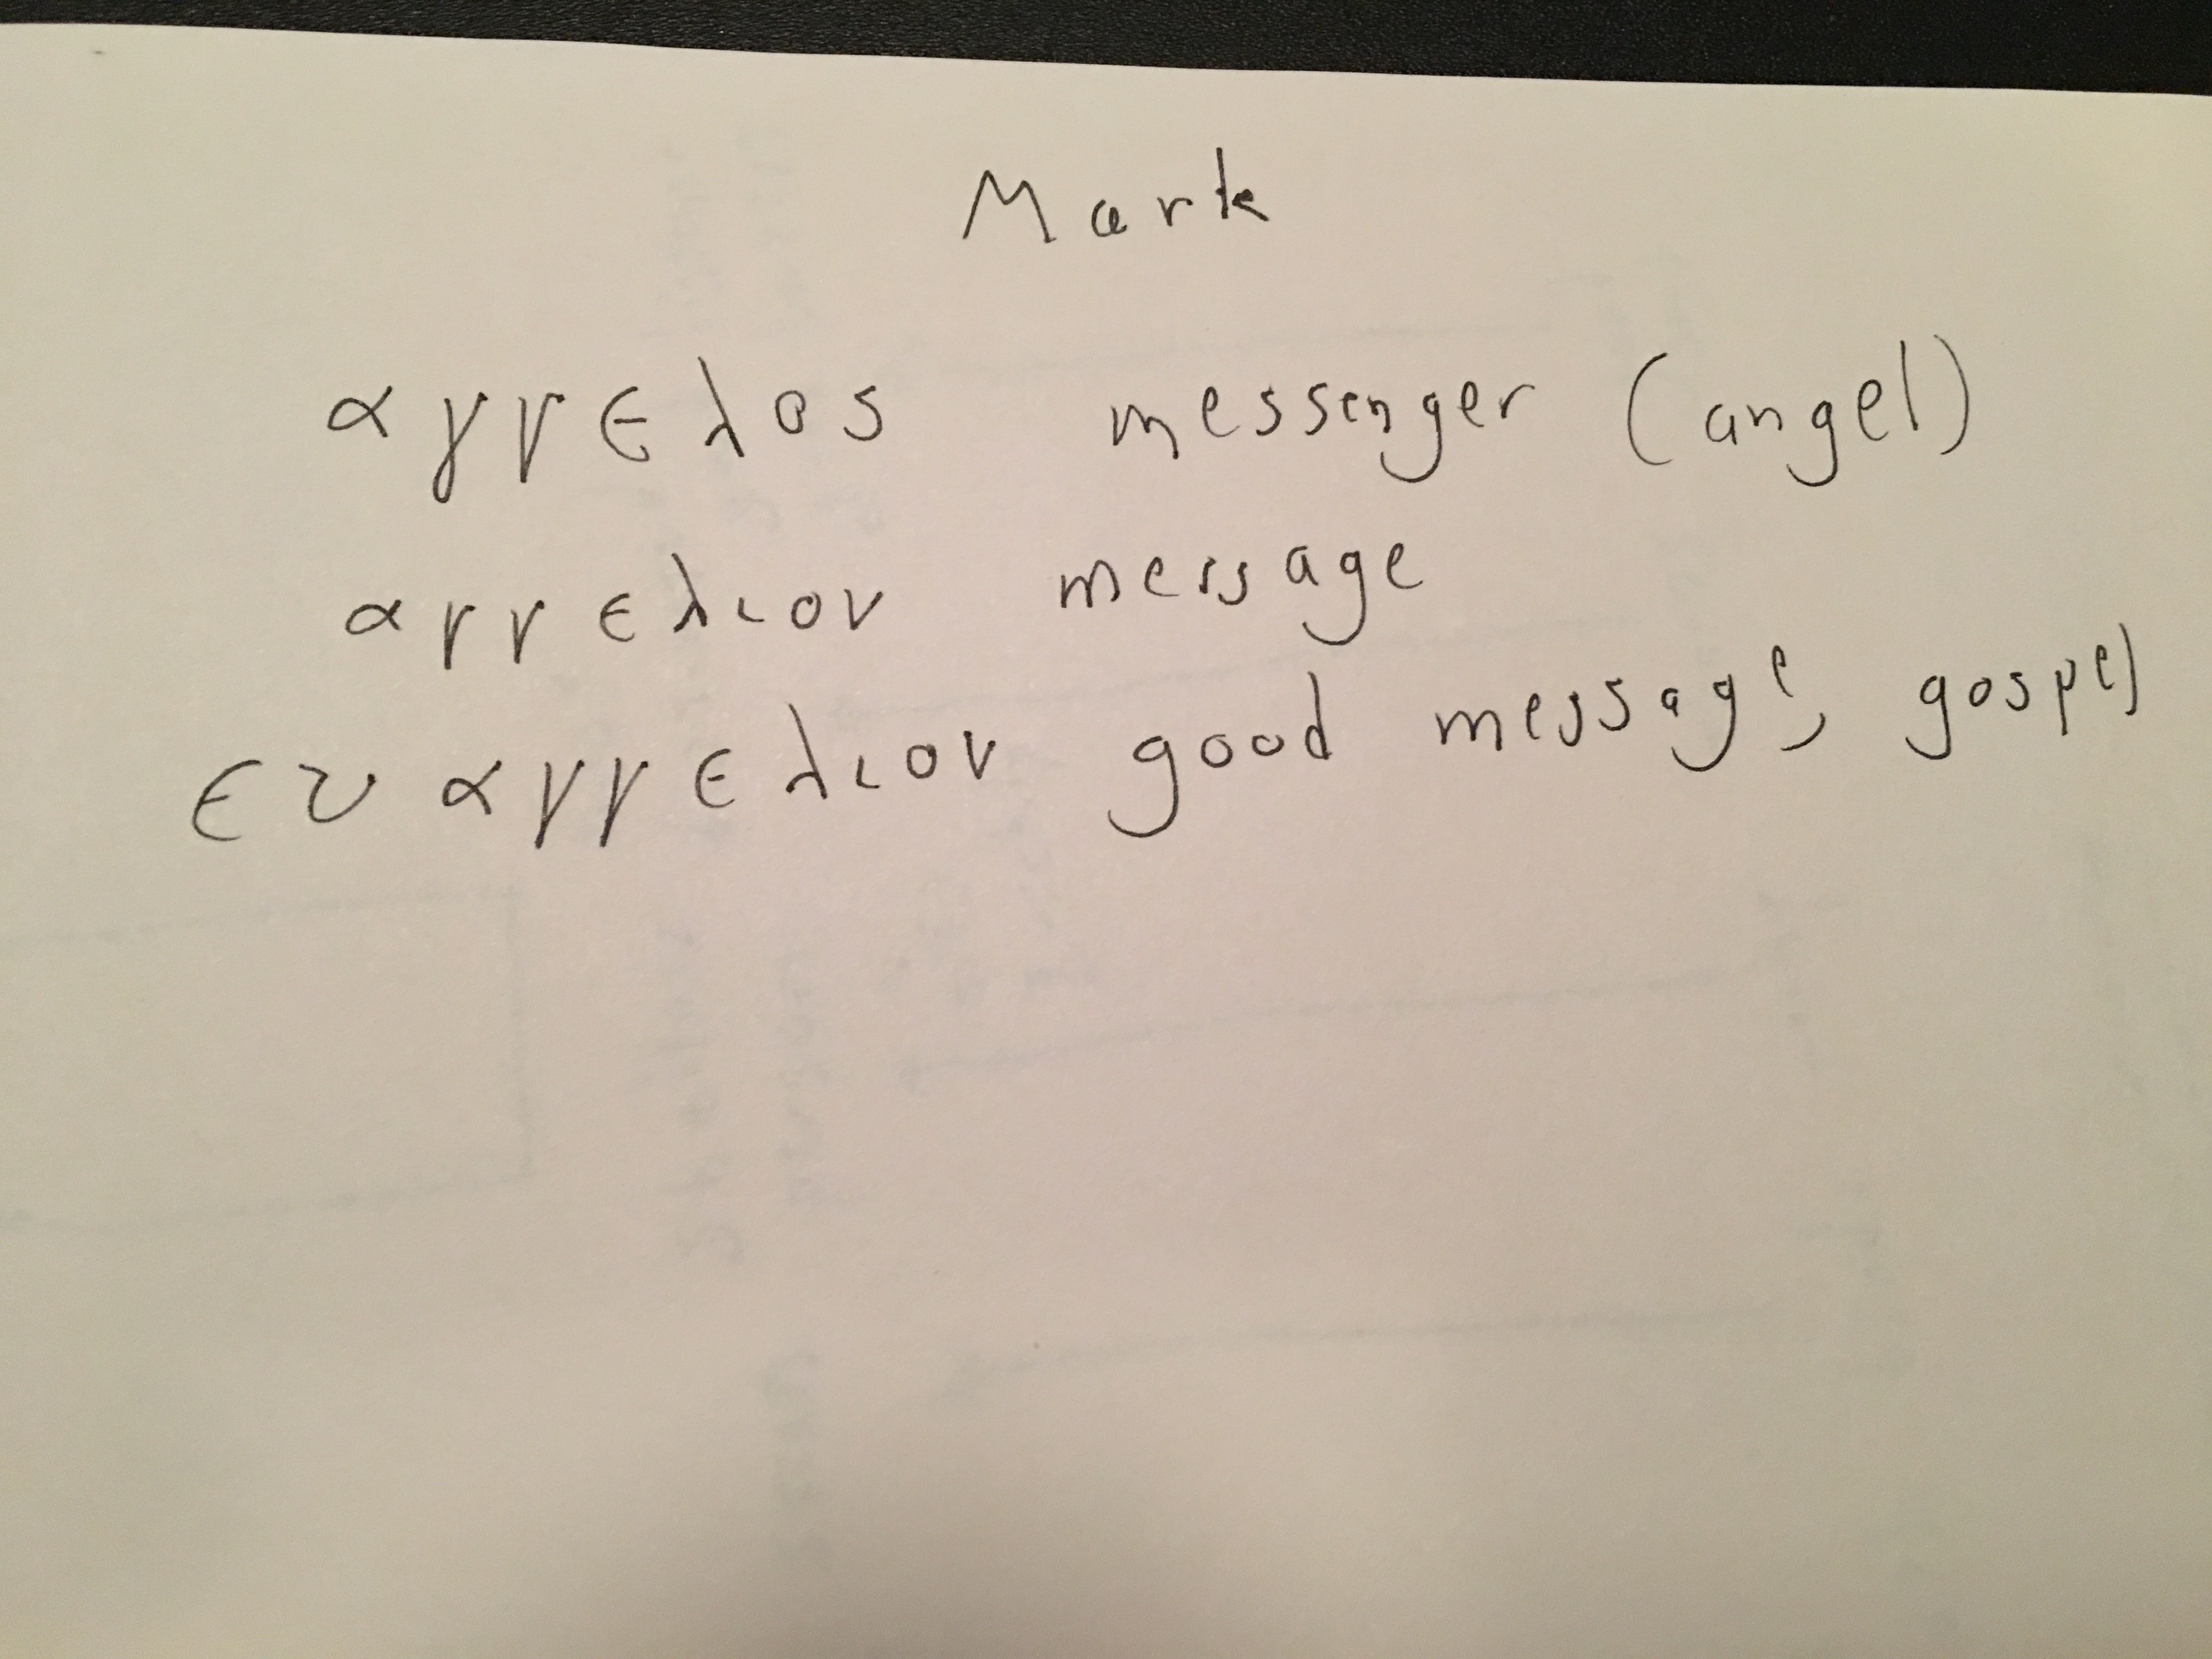 Mark
αγγελος messenger (angel)
αγγελιον message
ευαγγελιον good message, gospel